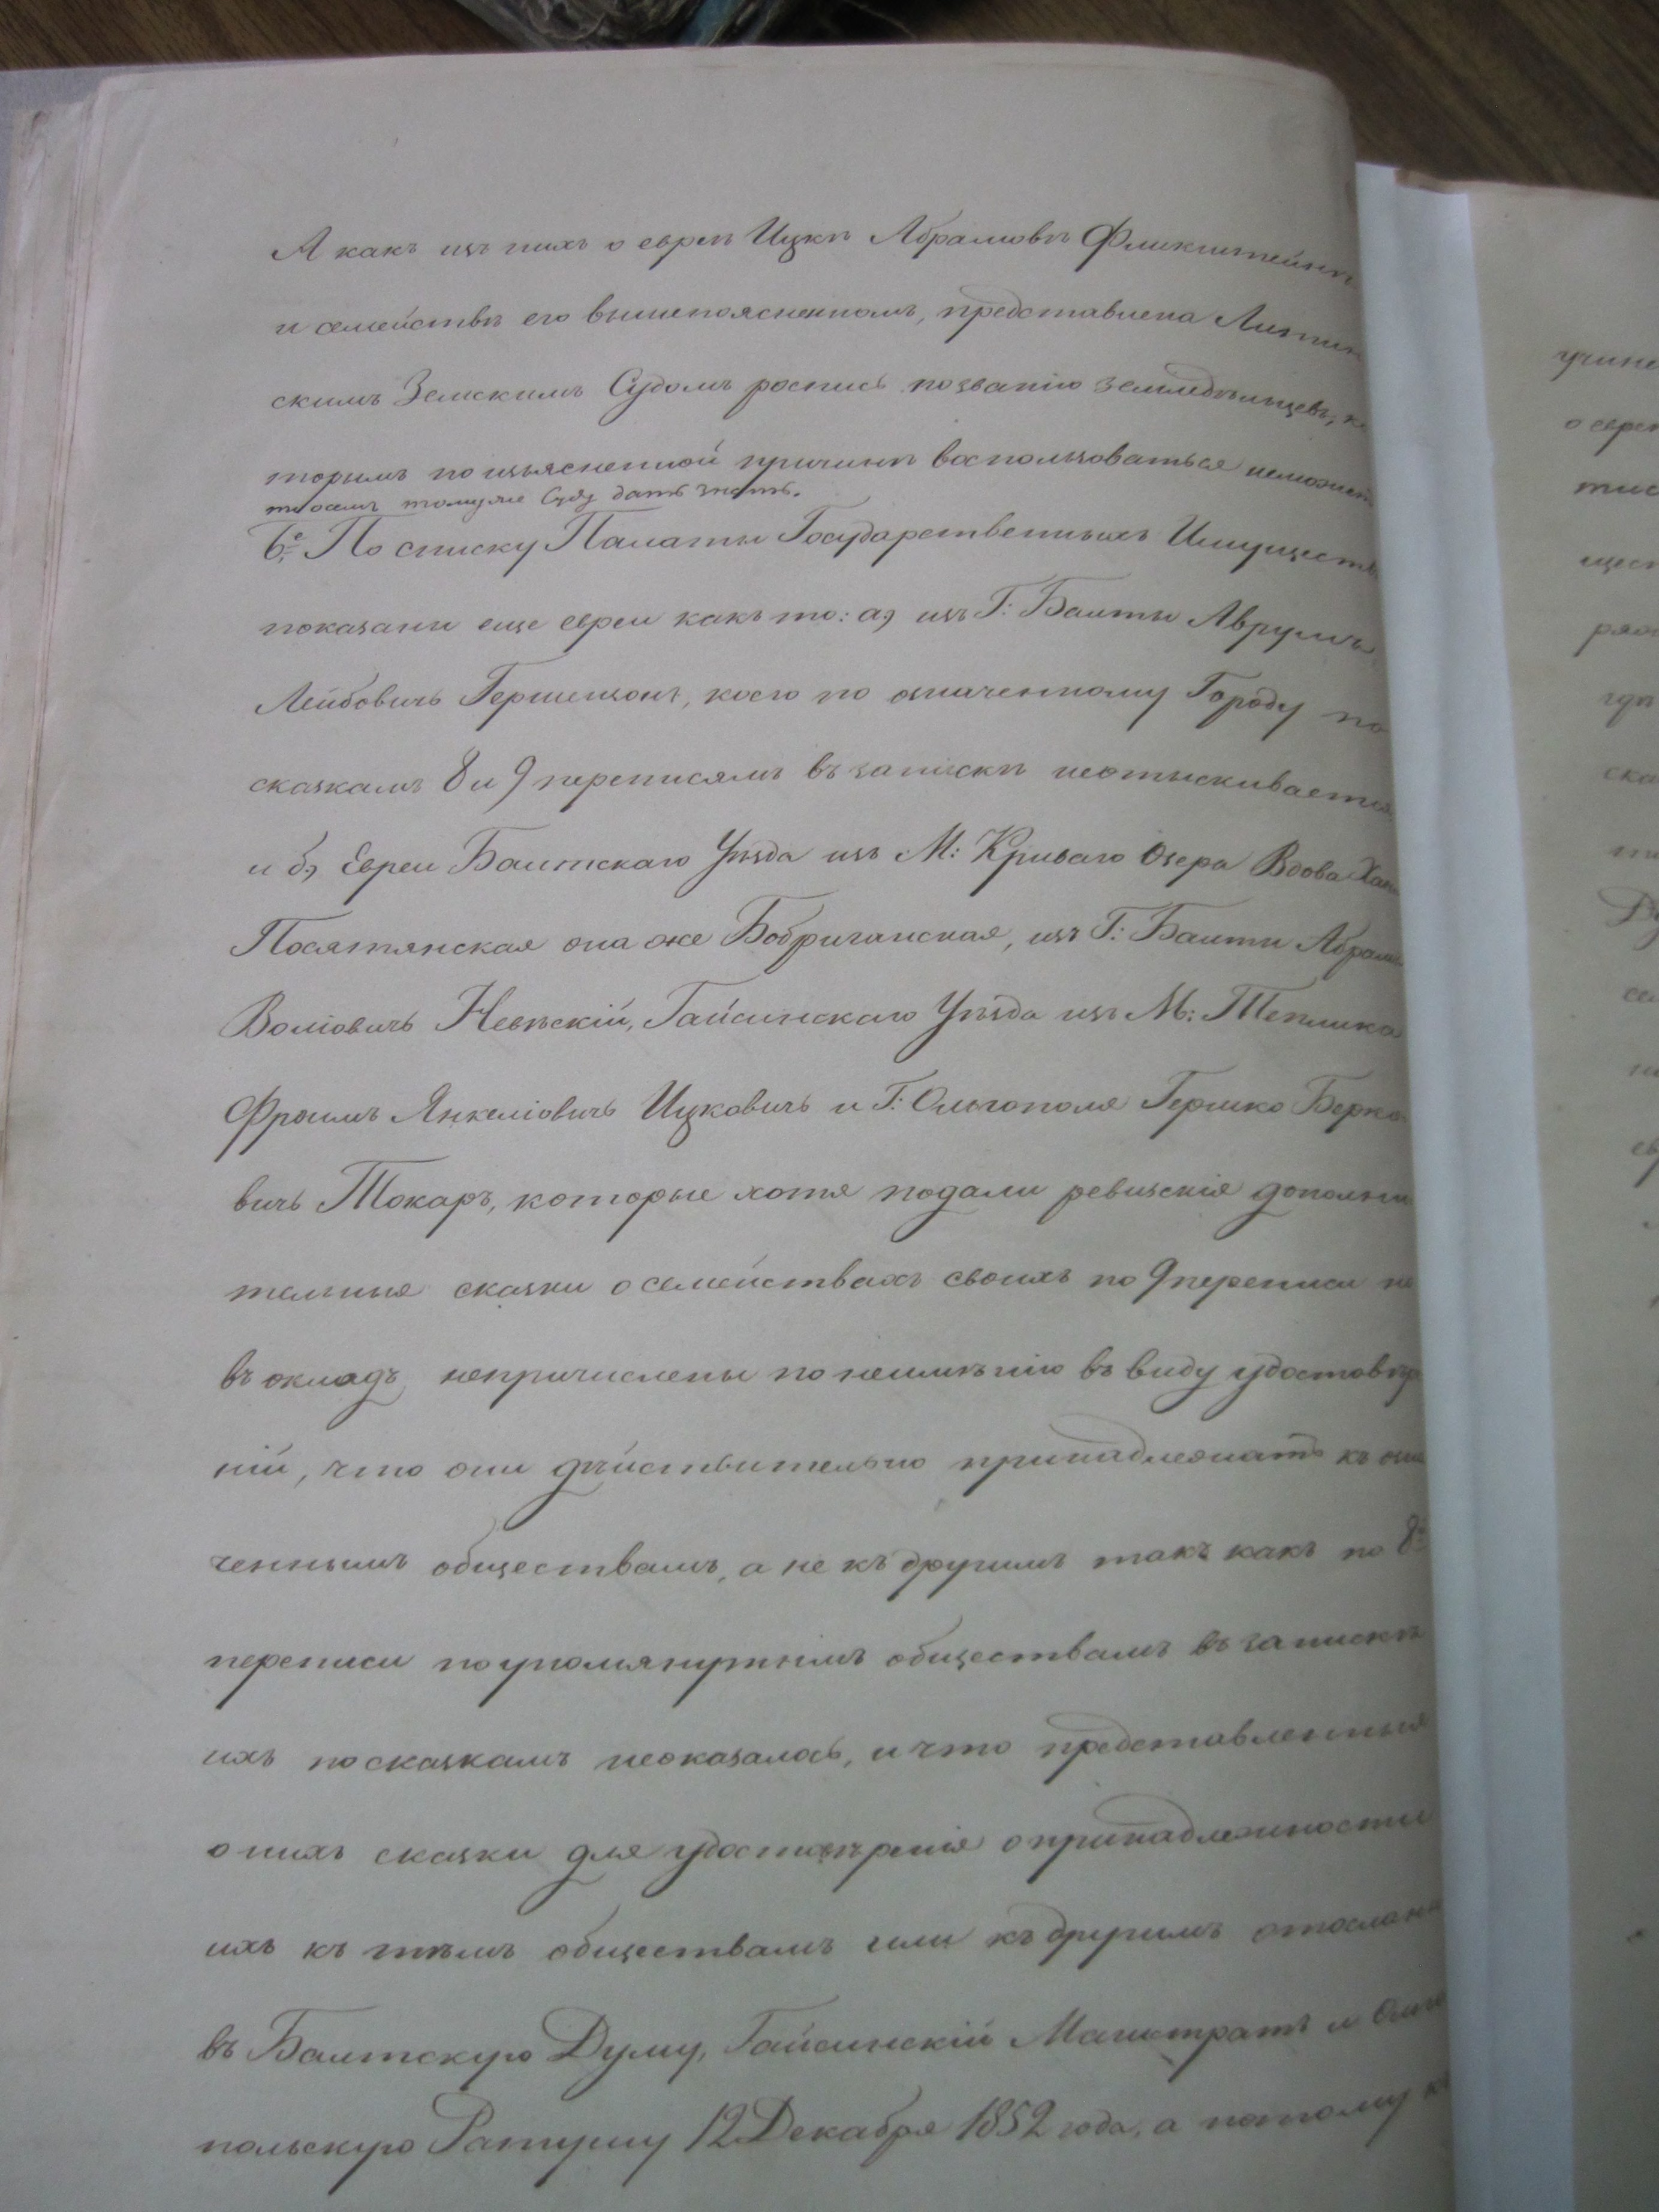 А какъ изъ нихъ о евреѣ Ицкѣ Абрамовѣ Фликштейнѣ
и семействѣ его вышепоясненномъ, представлена Литин
скимъ Земскимъ Судомъ роспись по званію земледѣльцевъ, ко
торымъ по изъясненной причинѣ воспользоваться неможетъ
то осемъ томуже Суду дать знать.
6е. По списку Палаты Государственныхъ Имуществъ
показаны еще евреи какъ то: а, изъ Г: Балты Аврумъ
Лейбовичъ Гершензонъ, коего по означенному Городу по
сказкамъ 8 и 9 переписямъ въ запискѣ неотыскивается
и б, Евреи Балтскаго Уѣзда изъ М: Криваго Озера Вдова
Посятянская она же Бобричанская, изъ Г: Балты Абрамъ
Воліовичъ Невѣскій, Гайсинскаго Уѣзда изъ М: Теплика
Фроимъ Янкеліовичъ Ицковичъ и Г: Ольгополя Гершко Берко
вичъ Токаръ, которые хотя подали ревизскія дополни
тельные сказки о семействахъ своихъ по 9 переписи но
въ окладъ непричислены по неимѣнію въ виду удостовѣре
ній, что они дѣйствительно принадлежатъ къ озна
ченнымъ обществамъ, а не къ другимъ такъ какъ по 8й
переписи по упомянутымъ обществамъ въ запискѣ
ихъ по сказкамъ неоказалось, и что представленныя
о нихъ сказки для удостовѣренія о принадлежности
ихъ къ тѣмъ обществамъ или къ другимъ отосланы
въ Балтскую Думу, Гайсинскій Магистратъ и Ольго
польскую Ратушу 12 Декабря 1852 года, а потому
учине
о евре